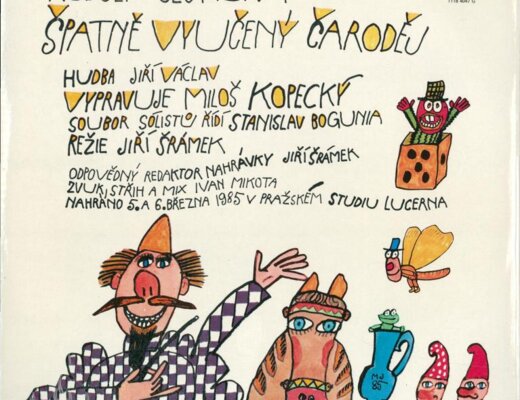 ŠPATNĚ VYUČENÝ ČARODĚJ
HUDBA JIŘÍ VÁCLAV
VYPRAVUJE MILOŠ KOPECKÝ
SOUBOR SÓLISTŮ ŘÍDÍ STANISLAV BOGUNIA
REŽIE JIŘÍ ŠRÁMEK
ODPOVĚDNÝ REDAKTOR NAHRÁVKY JIŘÍ ŠRÁMEK
ZVUK, STŘIH A MIX IVAN MIKOTA
NAHRÁNO 5. A 6. BŘEZNA 1985 V PRAŽSKÉM STUDIU LUCERNA
MJ
85